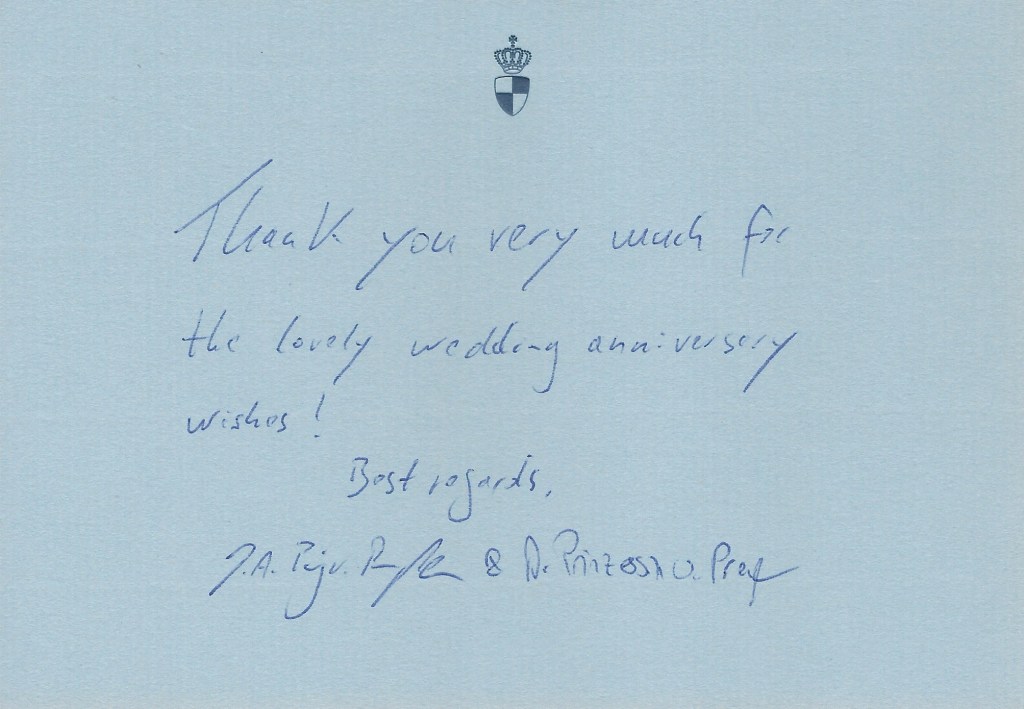 Thank you very much for
the lovely wedding anniversary
wishes!
Best regards,
J.A. & Prinzessin v.